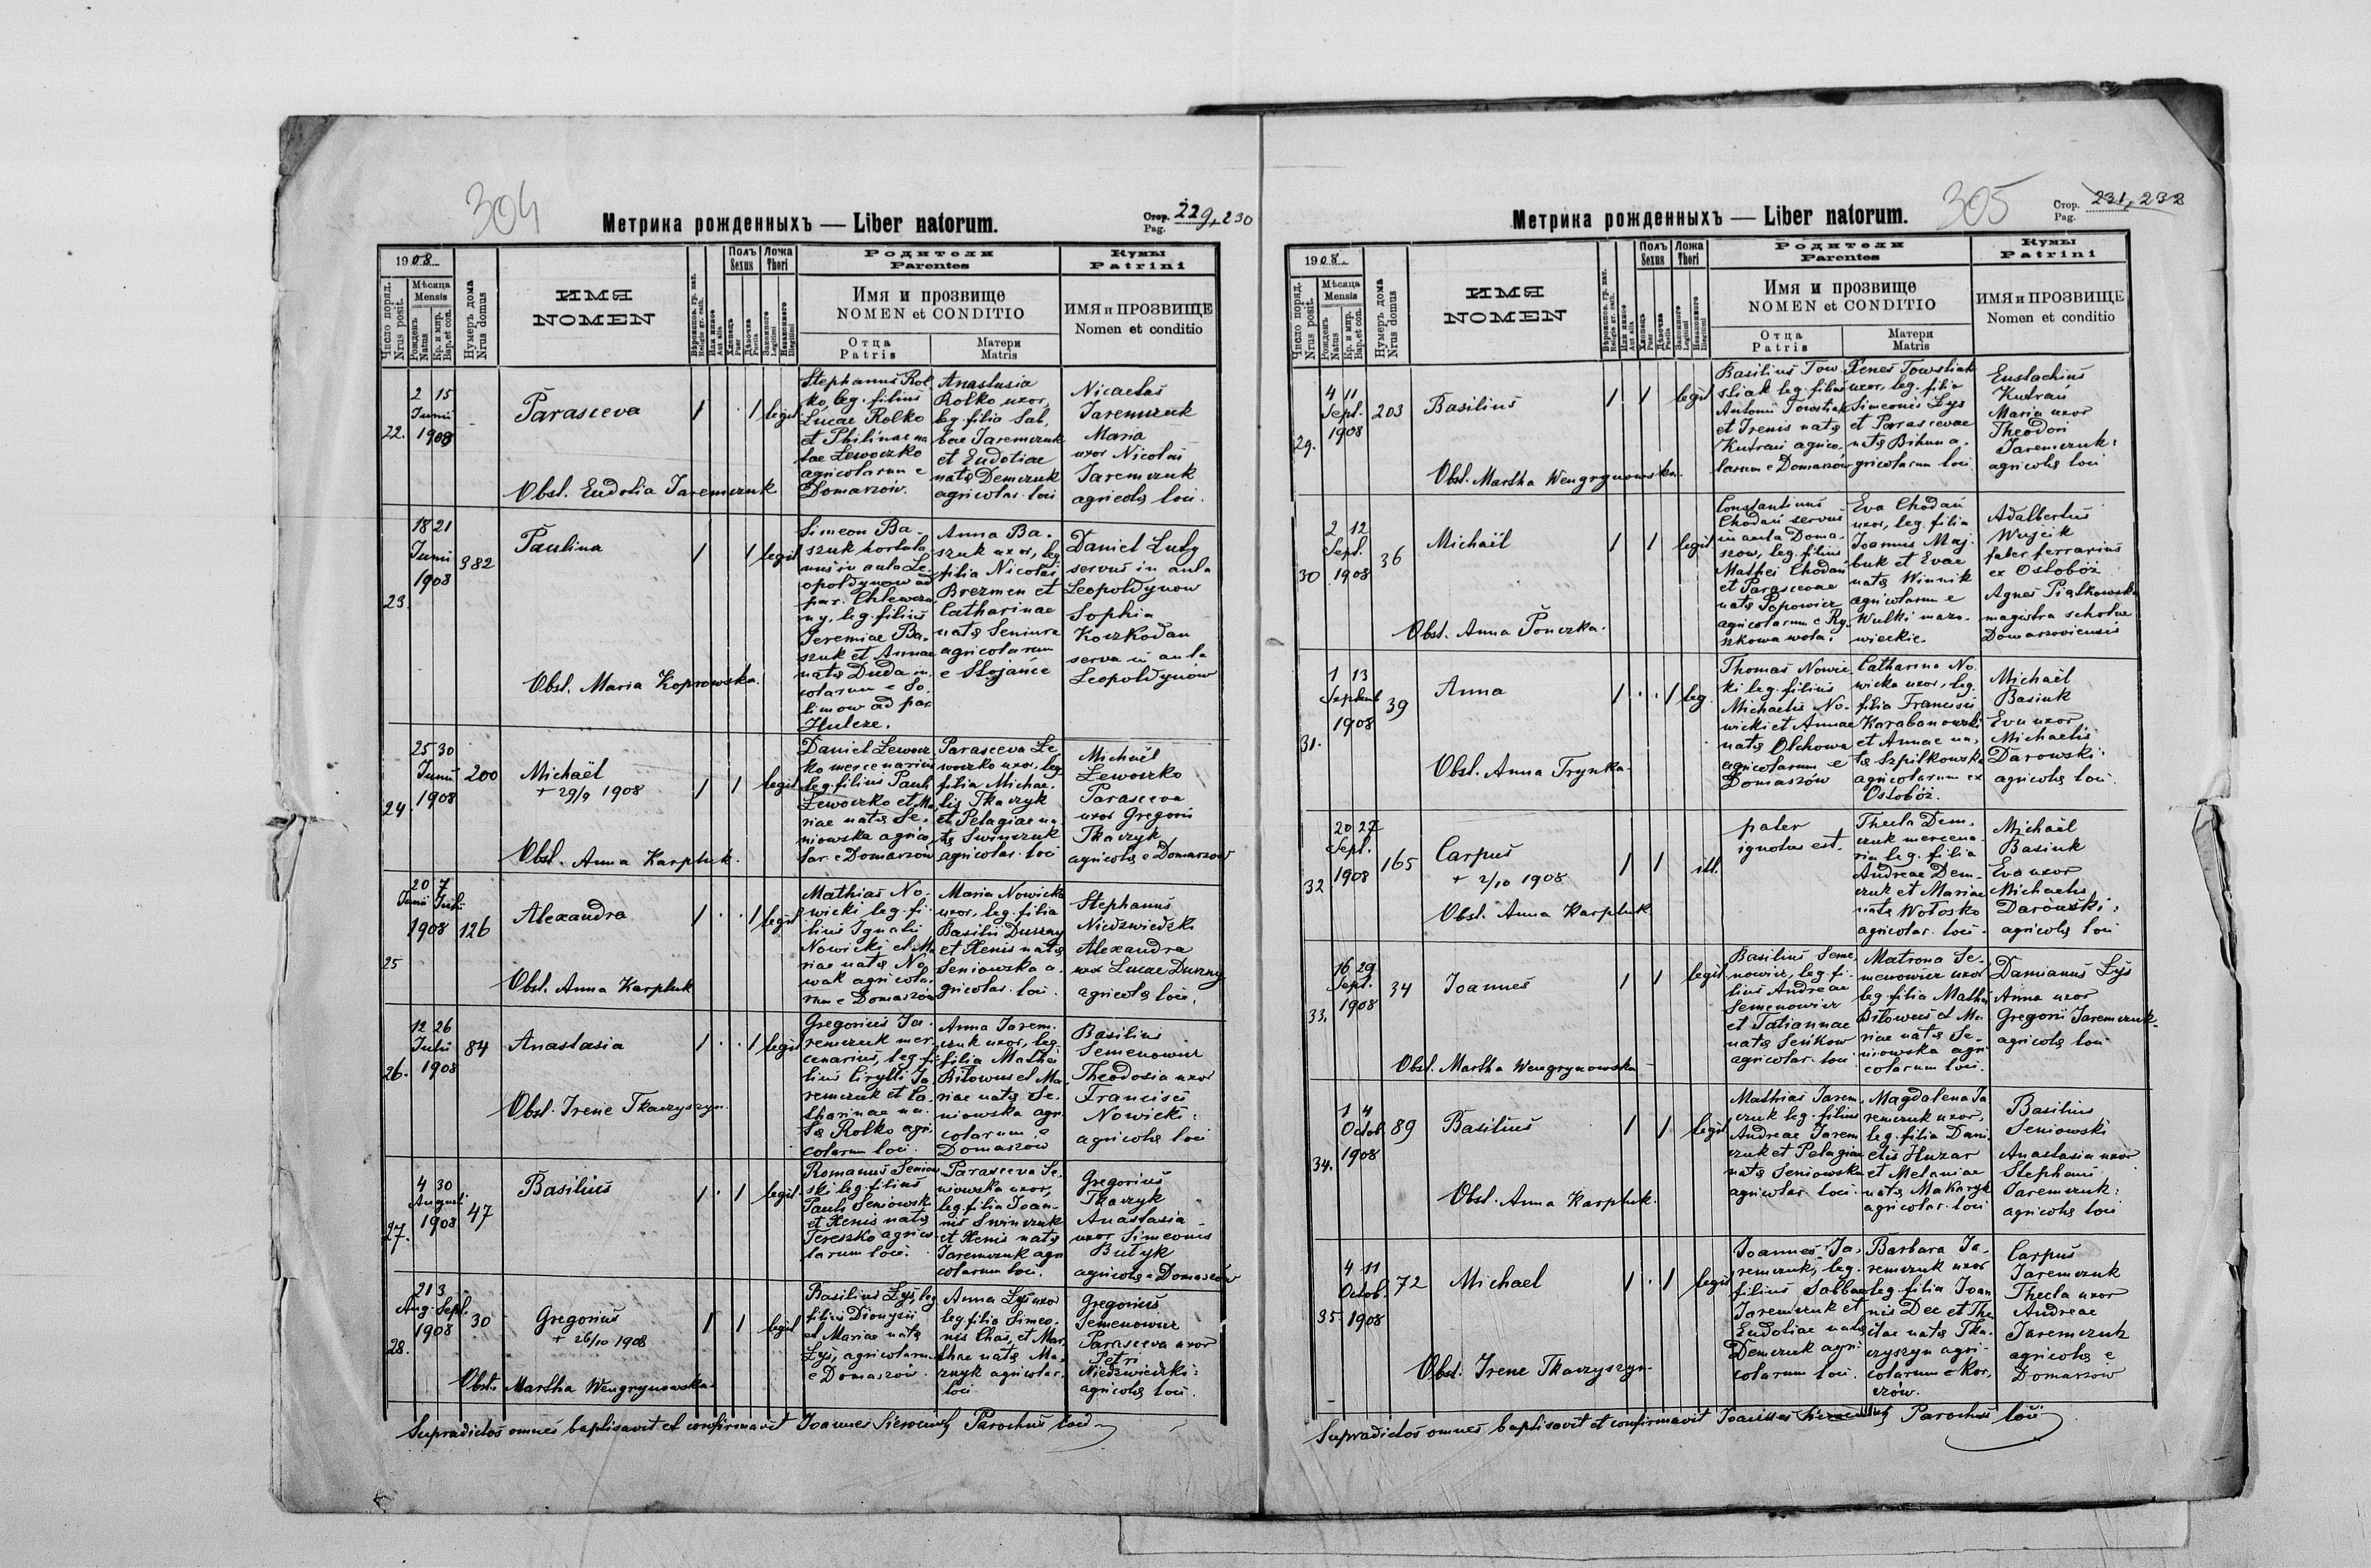 304
Метрика рожденныхъ — Liber natorum.
Стор. Pag. 229, 230
1908
Число поряд. Nrus posit.
Мѣсяца Mensis
Рожденъ Natus
Кр. и мѵр. Bap. et con.
Нумеръ дома Nrus domus
ИМЯ
NOMEN
Полъ Sexus
Хлопецъ Puer
Дѣвочка Puella
Ложа Thori
Законного Legitimi
Незаконного Illegitimi
Родители
Parentes
Имя и прозвище
NOMEN et CONDITIO
Отца Patris
Матери Matris
Кумы
Patrini
ИМЯ и ПРОЗВИЩЕ
Nomen et conditio
22.
2 15
Junii
1908
Parasceva
1 1 legit
Obst. Eudotia Jaremczuk
Stephanus Rol-
ko leg. filius
Lucae Rolko
et Philinae na
tae Lewoczko
agricolarum e
Domaszów.
Anastasia
Rolko uxor,
leg. filia Sab,
bae Jaremczuk
et Eudotiae
natae Demczuk
agricolar. loci
Nicaetas
Jaremczuk
Maria
uxor Nicolai
Jaremczuk
agricolae loci.
23.
18 21
Junii
1908
382
Paulina
1 1 legit
Obst. Maria Koprowska.
Simeon Ba-
szuk hortula
nus in aula Le-
opoldynow ad
par. Chlewcza
ny, leg. filius
Jeremiae Ba-
szuk et Annae
natae Duda in
colarum e So-
limow ad par.
Hulcze.
Anna Ba-
szuk uxor, leg
filia Nicolai
Brezmen et
Catharinae
natae Seniura
agricolarum
e Stojańce
Daniel Luty
servus in aula
Leopoldynow
Sophia
Koczkodan
serva in aula
Leopoldynow
24.
25 30
Junii
1908
200
Michaël
+ 29/9 1908
1 1 legit
Obst. Anna Karpluk.
Daniel Lewocz
ko mercenarius
leg. filius Pauli
Lewoczko et Ma
riae natae Se-
niowska agrico
lar. e Domaszów
Parasceva Le
woczko uxor, leg
filia Michae-
lis Tkaczyk
et Pelagiae na
tae Swinczuk
agricolar. loci
Michaël
Lewoczko
Parasceva
uxor Gregorii
Tkaczyk
agricolae e Domaszow
25
20 7
Junii Julii
1908
126
Alexandra
1 1 legit
Obst. Anna Karpluk
Mathias No-
wicki leg. fi-
lius Ignatii
Nowicki et Ma
riae natae No
wak agricola
rum e Domaszów
Maria Nowicka
uxor, leg. filia
Basilii Duszny
et Xenis natae
Seniowska a-
gricolar. loci.
Stephanus
Niedzwiedzki
Alexandra
uxor Lucae Duszny
agricolae loci.
26.
12 26
Julii
1908
84
Anastasia
1 1 legit
Obst. Irene Tkaczyszyn.
Gregorius Ja-
remczuk mer
cenarius, leg. fi
lius Cirylli Ja
remczuk et Ca
tharinae na-
tae Rolko agri
colarum loci.
Anna Jarem-
czuk uxor, leg.
filia Mathei
Bilowus et Ma
riae natae Se-
niowska agri
colarum e
Domaszów
Basilius
Semenowicz
Theodosia uxor
Francisci
Nowicki:
agricolae loci
27.
4 30
Augusti
1908
47
Basilius
1 1 legit.
Romanus Seniow
ski leg. filius
Pauli Seniowski
et Xenis natae
Tereszko agrico
larum loci.
Parasceva Se-
niowska uxor,
leg. filia Joan-
nis Swinczuk
et Xenis natae
Jaremczuk agri
colarum loci.
Gregorius
Tkaczyk
Anastasia
uxor Simeonis
Bułyk
agricolae e Domaszów
28.
21 3
Aug. Sept.
1908
30
Gregorius
+ 26/10 1908
1 1 legit
Obst. Martha Wengrynowska.
Basilius Łyś, leg
filius Dionysii
et Mariae natae
Łyś, agricolarum
e Domaszów.
Anna Łyś uxor
leg. filia Simeo-
nis Chaś, et Mar
thae natae Ma-
znyk agricolar.
loci
Gregorius
Semenowicz
Parasceva uxor
Petri
Niedzwiedzki:
agricolae loci.
Supradictos omnes baptisavit et confirmavit Joannes Parochus loci
305
Метрика рожденныхъ — Liber natorum.
Стор. Pag. 231, 232
1908
Число поряд. Nrus posit.
Мѣсяца Mensis
Рожденъ Natus
Кр. и мѵр. Bap. et con.
Нумеръ дома Nrus domus
ИМЯ
NOMEN
Полъ Sexus
Хлопецъ Puer
Дѣвочка Puella
Ложа Thori
Законного Legitimi
Незаконного Illegitimi
Родители
Parentes
Имя и прозвище
NOMEN et CONDITIO
Отца Patris
Матери Matris
Кумы
Patrini
ИМЯ и ПРОЗВИЩЕ
Nomen et conditio
29.
4 11
Sept.
1908
203
Basilius
1 1 legit
Obst. Martha Wengrynowska.
Basilius Tow
stiak leg. filius
Antonii Towstiak
et Irenis natae
Kutrań agrico-
larum e Domaszów
Xenes Towstiak
uxor, leg. filia
Simeonis Łys
et Parascevae
natae Bihuna a-
gricolarum loci
Eustachius
Kutrań
Maria uxor
Theodori
Jaremczuk:
agricolae loci
30
2 12
Sept.
1908
36
Michaïl
1 1 legit
Obst. Anna Ponczka.
Constantinus
Chodań servus
in aula Doma-
szow, leg. filius
Mathei Chodań
et Parascevae
natae Popowicz
agricolarum e Ry-
szkowa wola.
Eva Chodań
uxor, leg. filia
Joannis Maj-
buk et Evae
natae Winnik
agricolarum e
Wulki mazo-
wieckie.
Adalbertus
Wujcik
faber ferrarius
ex Ostobóż
Agnes Piątkowska
magistra scholae
Domaszoviensis
31.
1 13
Septemb
1908
39
Anna
1 1 leg.
Obst. Anna Trynka.
Thomas Nowic
ki leg. filius
Michaelis No-
wicki et Annae
natae Olchowa
agricolarum e
Domaszów
Catharina No-
wicka uxor, leg
filia Francisci
Karabanowski
et Annae na-
tae Szpilkowska
agricolarum ex
Ostobóż.
Michaël
Basiuk
Eva uxor
Michaelis
Darowski:
agricolae loci.
32.
20 27
Sept.
1908
165
Carpus
+ 2/10 1908
1 1 ill.
Obst. Anna Karpluk
pater
ignotus est.
Thecla Dem-
czuk mercena
ria, leg. filia
Andreae Dem-
czuk et Mariae
natae Wołosko
agricolar. loci.
Michaël
Basiuk
Eva uxor
Michaelis
Darowski:
agricolae loci
33.
16 29
Sept.
1908
34
Joannes
1 1 legit
Obst. Martha Wengrynowska
Basilius Seme-
nowicz, leg. fi-
lius Andreae
Semenowicz
et Tatiannae
natae Seńkow
agricolar. loci
Matrona Se-
menowicz uxor
leg. filia Mathei
Bilowus et Ma
riae natae Se-
niowska agri
colarum loci.
Damianus Łyś
Anna uxor
Gregorii Jaremczuk
agricolae loci
34.
1 4
Octob
1908
89
Basilius
1 1 legit
Obst. Anna Karpluk.
Mathias Jarem-
czuk leg. filius
Andreae Jarem
czuk et Pelagiae
natae Seniowska
agricolar. loci.
Magdalena Ja
remczuk uxor,
leg. filia Dani
elis Huzar
et Melaniae
natae Makaryk
agricolar. loci
Basilius
Seniowski
Anastasia uxor
Stephani
Jaremczuk:
agricolae loci
35
4 11
Octob.
1908
72
Michael
1 1 legit
Obst. Irene Tkaczyszyn
Joannes Ja-
remczuk, leg.
filius Sabbae
Jaremczuk et
Eudotiae natae
Demczuk agri-
colarum loci.
Barbara Ja-
remczuk uxor
leg. filia Joan
nis Dec et The
clae natae Tka-
czyszyn agri-
colarum e Kor-
czów.
Carpus
Jaremczuk
Thecla uxor
Andreae
Jaremczuk
agricolae e
Domaszów
Supradictos omnes baptisavit et confirmavit Joannes Parochus loci